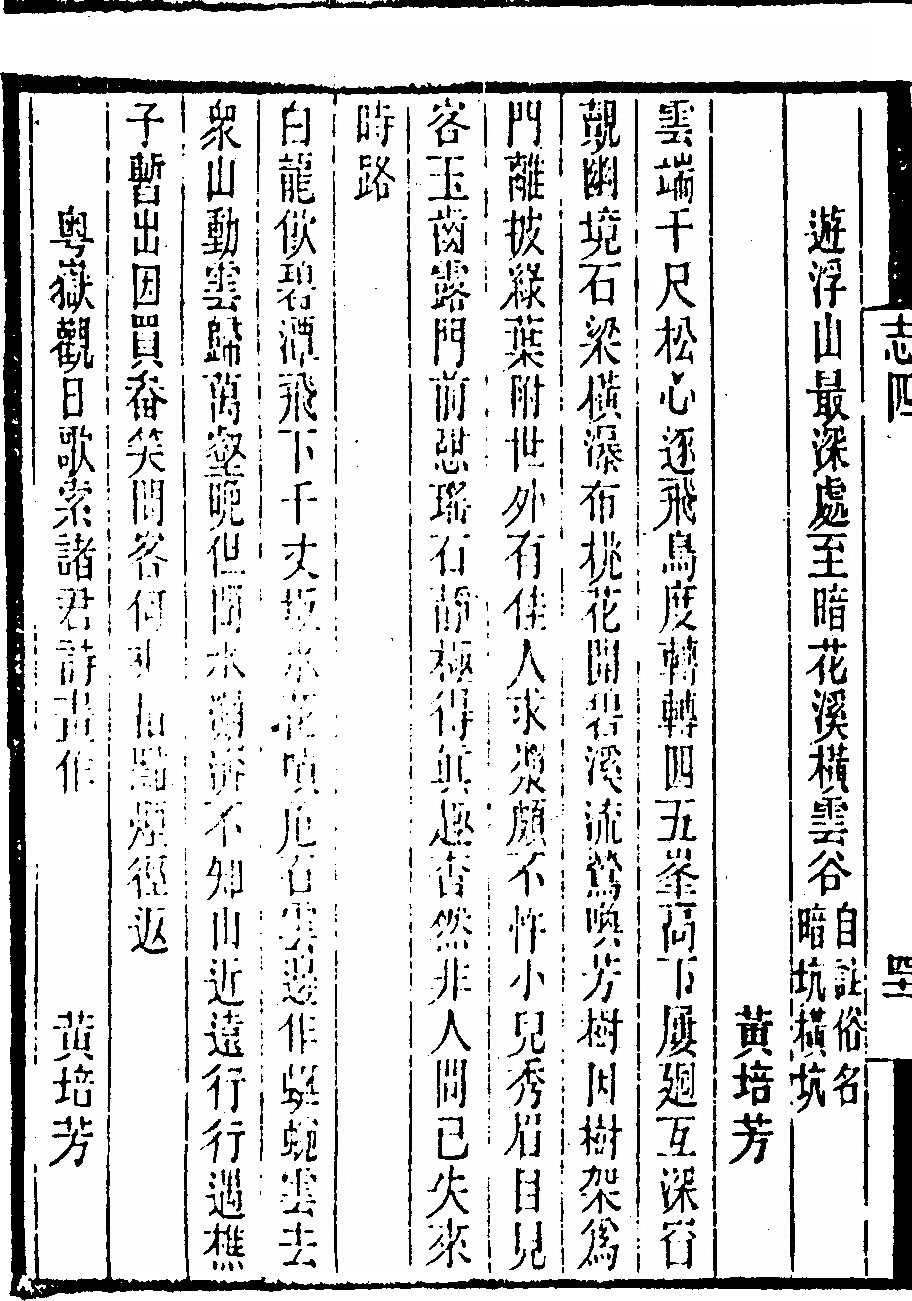 志四
四十一
遊浮山最深處至暗花溪橫雲谷自註俗名暗坑橫坑
黃培芳
雲端千尺松心逐飛鳥度轉轉四五峯高下屢廻互深窅
覩幽境石梁橫瀑布桃花開碧溪流鶯喚芳樹因樹架爲
門離披綠葉附世外有佳人求漿頗不忤小兒秀眉目見
客玉齒露門前憇瑤石靜極得眞趣杳然非人間已失來
時路
白龍飲碧潭飛下千丈坂水花噴危石雲邊作蜿蜒雲去
衆山動雲歸萬壑晚但聞水潺湲不知山近遠行行遇樵
子暫出因買畚笑問客何 煙徑返
粤嶽觀日歌索諸君詩畫作
黃培芳